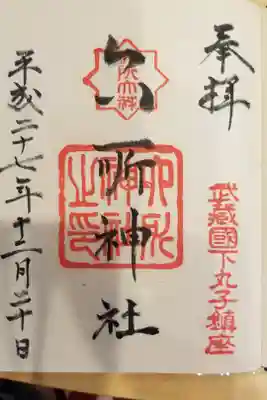 奉拝
武蔵國下丸子鎮座
六所神社
平成二十七年十二月二十日